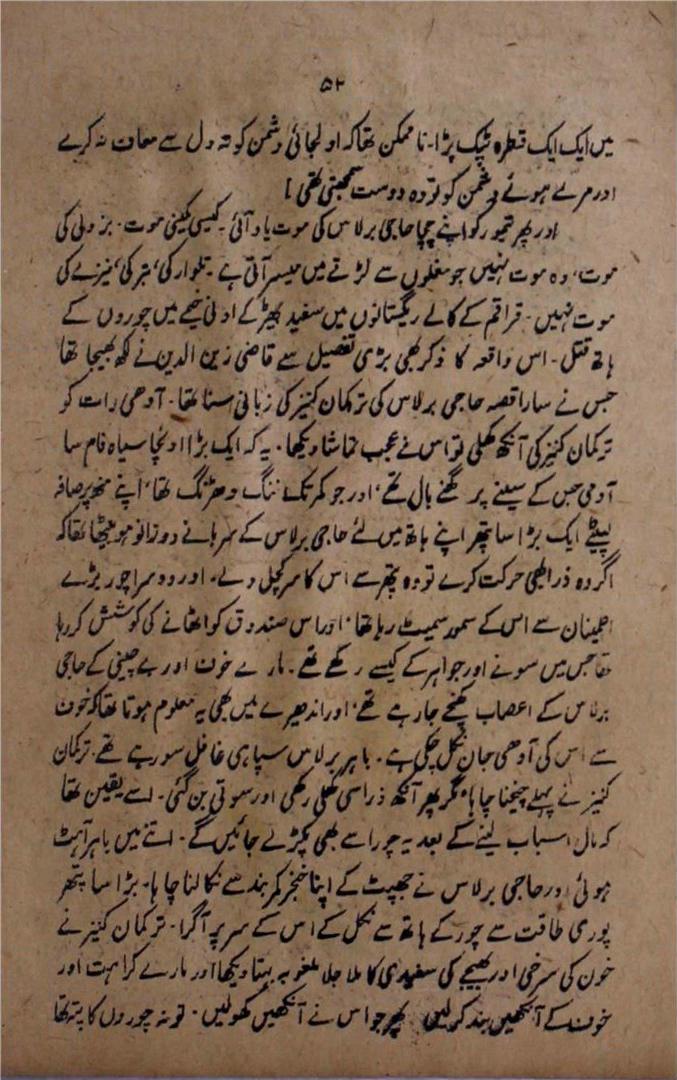 ۵۲
میں ایک ایک قطرہ ٹپک پڑا۔ نا ممکن تھا کہ اولجائی دشمن کو تہ دل سے معاف نہ کرے
اور مرے ہوئے دشمن کو تو وہ دوست سمجھتی تھی!
اور پھر تیمور کو اپنے چچا حاجی برلاس کی موت یاد آئی۔ کیسی کمینی موت۔ بزدلی کی
موت، وہ موت نہیں جو مغلوں سے لڑتے میں میسر آتی ہے۔ تلوار کی، تبر کی، نیزے کی
موت نہیں۔ قراقم کے کالے ریگستانوں میں سفید بھیڑ کے اونی خیمے میں چوروں کے
ہاتھ قتل۔ اس واقعہ کا ذکر بھی بڑی تفصیل سے قاضی زین الدین نے لکھ بھیجا تھا
جس نے سارا قصہ حاجی برلاس کی ترکمان کنیز کی زبانی سنا تھا۔ آدھی رات کو
ترکمان کنیز کی آنکھ کھلی تو اس نے عجب تماشا دیکھا۔ یہ کہ ایک بڑا اونچا سیاہ فام سا
آدمی جس کے سینے پر گھنے بال تھے، اور جو کمر تک ننگ دھڑنگ تھا، اپنے منھ پر صافہ
لپیٹے ایک بڑا سا پتھر اپنے ہاتھ میں لئے حاجی برلاس کے سرہانے دو زانو ہو بیٹھا تھا کہ
اگر وہ ذرا بھی حرکت کرے تو وہ پتھر سے اس کا سر کچل دے۔ اور دوسرا چور بڑے
اطمینان سے اس کے سمور سمیٹ رہا تھا، اور اس صندوق کو اٹھانے کی کوشش کر رہا
تھا جس میں سونے اور جواہر کے کیسے رکھے تھے۔ مارے خوف اور بے چینی کے حاجی
برلاس کے اعصاب کھنچے جا رہے تھے، اور اندھیرے میں بھی یہ معلوم ہوتا تھا کہ خوف
سے اس کی آدھی جان نکل چکی ہے۔ باہر برلاس سپاہی غافل سو رہے تھے۔ ترکمان
کنیز نے پہلے چیخنا چاہا، مگر پھر آنکھ ذرا سی کھلی رکھی اور سوتی بن گئی۔ اسے یقین تھا
کہ مال اسباب لینے کے بعد یہ چور اسے بھی پکڑ لے جائیں گے۔ اتنے میں باہر آہٹ
ہوئی اور حاجی برلاس نے جھپٹ کے اپنا خنجر کمر بند سے نکالنا چاہا۔ بڑا سا پتھر
پوری طاقت سے چور کے ہاتھ سے نکل کے اس کے سر پر آ گرا۔ ترکمان کنیز نے
خون کی سرخی اور بھیجے کی سفیدی کا ملا جلا ملغوبہ بہتا دیکھا اور مارے کراہت اور
خوف کے آنکھیں بند کر لیں۔ پھر جو اس نے آنکھیں کھولیں۔ تو نہ چوروں کا پتہ تھا